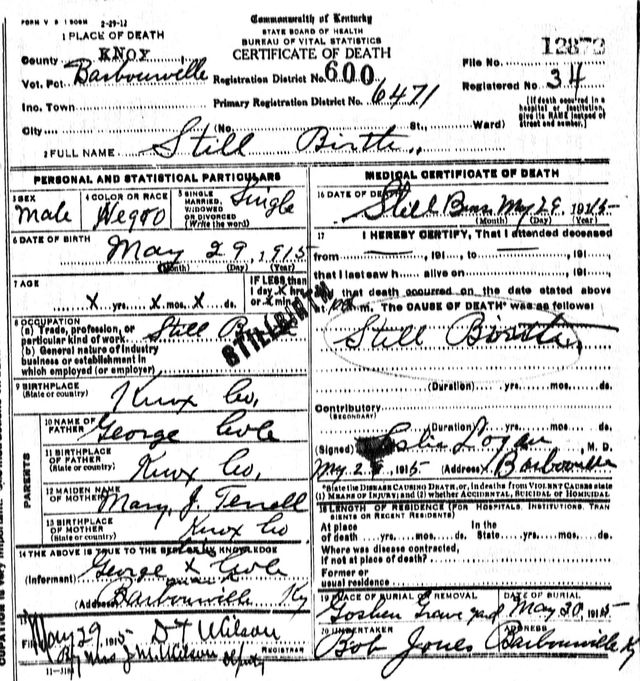 FORM V S 1 2-29-12
Commonwealth of Kentucky
STATE BOARD OF HEALTH
BUREAU OF VITAL STATISTICS
CERTIFICATE OF DEATH
1 PLACE OF DEATH
County KNOX
Vot. Pct. Barbourville
Inc. Town
City
Registration District No. 600
Primary Registration District No. 6471
(No. St., Ward)
File No. 12872
Registered No. 34
(If death occurred in a hospital or institution, give its NAME instead of street and number.)
2 FULL NAME Still Birth
PERSONAL AND STATISTICAL PARTICULARS
3 SEX
Male
4 COLOR OR RACE
Negro
5 SINGLE, MARRIED, WIDOWED OR DIVORCED (Write the word)
Single
6 DATE OF BIRTH
May 29, 1915
(Month) (Day) (Year)
7 AGE
X yrs. X mos. X ds.
IF LESS than 1 day X hrs. or X min.
8 OCCUPATION
(a) Trade, profession, or particular kind of work Still
(b) General nature of industry business or establishment in which employed (or employer)
STILLBIRTH
9 BIRTHPLACE
(State or country) Knox Co,
PARENTS
10 NAME OF FATHER George Cole
11 BIRTHPLACE OF FATHER
(State or country) Knox Co,
12 MAIDEN NAME OF MOTHER Mary J. Terrell
13 BIRTHPLACE OF MOTHER
(State or country) Knox Co
14 THE ABOVE IS TRUE TO THE BEST OF MY KNOWLEDGE
(Informant) George X Cole
(Address) Barbourville Ky
May 29 1915 D T Wilson
REGISTRAR
By Mrs J M Wilson Deputy
MEDICAL CERTIFICATE OF DEATH
16 DATE OF DEATH
Still Born May 29 1915
(Month) (Day) (Year)
17 I HEREBY CERTIFY, That I attended deceased
from , 191 , to , 191 ,
that I last saw h alive on , 191 ,
that death occurred on the date stated above
m. The CAUSE OF DEATH* was as follows:
Still Birth
(Duration) yrs. mos. ds.
Contributory
(SECONDARY)
(Duration) yrs. mos. ds.
(Signed) Leslie Logan, M. D.
May 2 1915 (Address) Barbourville
*State the DISEASE CAUSING DEATH, or, in deaths from VIOLENT CAUSES state
(1) MEANS OF INJURY; and (2) whether ACCIDENTAL, SUICIDAL OR HOMICIDAL
18 LENGTH OF RESIDENCE (FOR HOSPITALS, INSTITUTIONS, TRANSIENTS OR RECENT RESIDENTS)
At place of death yrs. mos. ds. In the State yrs. mos. ds.
Where was disease contracted, if not at place of death?
Former or usual residence
19 PLACE OF BURIAL OR REMOVAL DATE OF BURIAL
Goshen Grave yard May 20, 1915
20 UNDERTAKER ADDRESS
Bob Jones Barbourville Ky